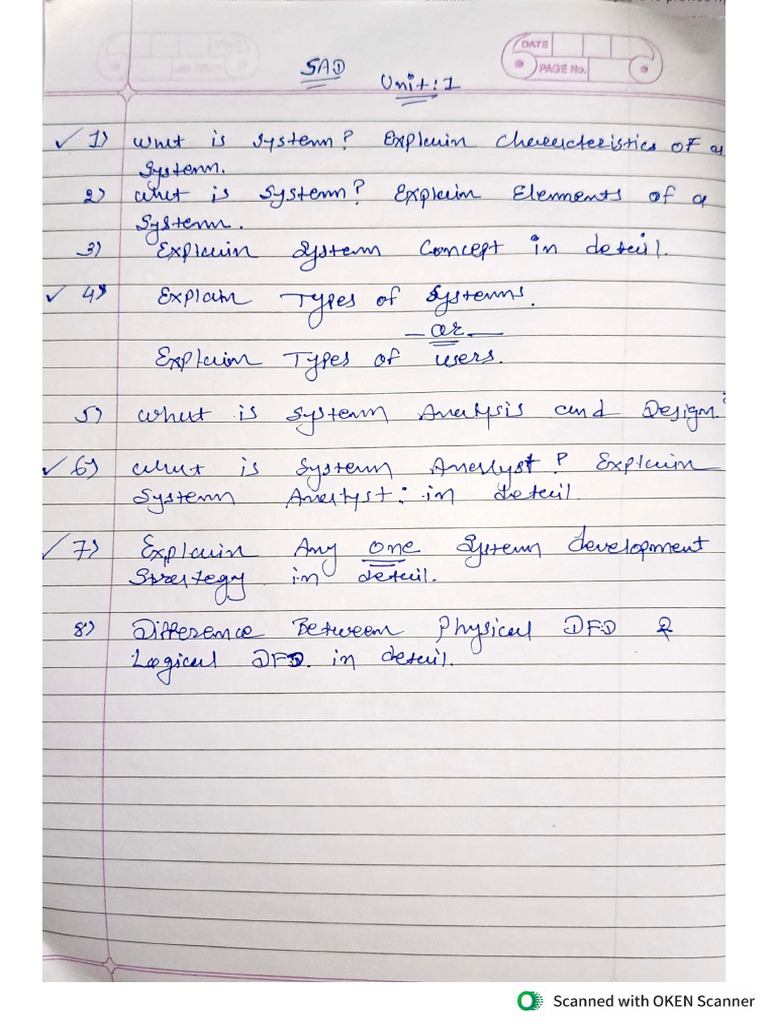 DATE
PAGE No.
SAD
Unit: 1
✓ 1) What is system? Explain Characteristics of a
System.
2) What is System? Explain Elements of a
System.
3) Explain System Concept in detail.
✓ 4) Explain Types of Systems.
— OR —
Explain Types of users.
5) What is System Analysis and Design.
✓ 6) What is System Analyst? Explain
System Analyst: in detail.
✓ 7) Explain Any one System development
Strategy in detail.
8) Difference Between Physical DFD &
Logical DFD. in detail.
Scanned with OKEN Scanner